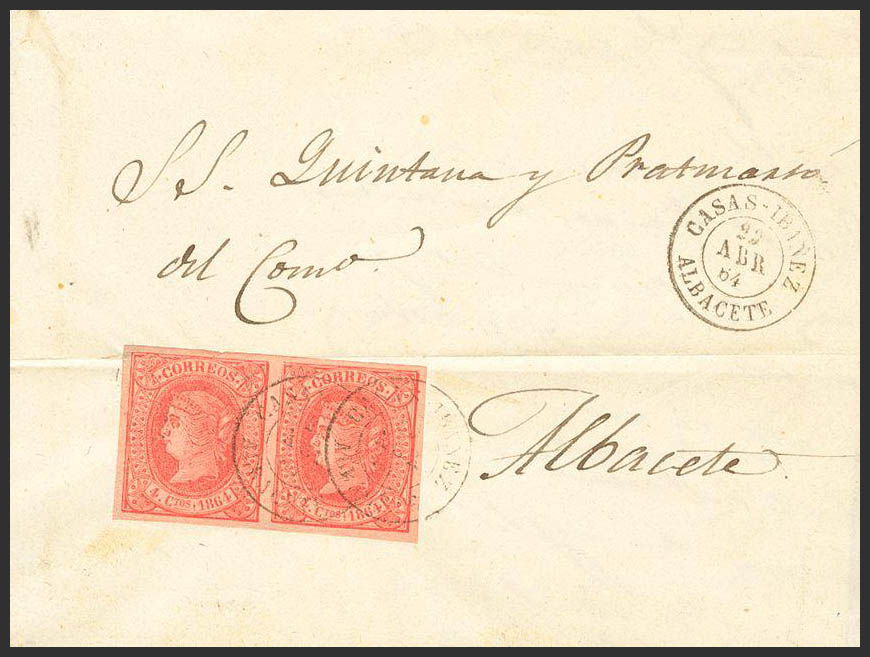 S.S. Quintana y Pratmarsó
del Como.
CASAS-IBAÑEZ
ABR
64
ALBACETE
CORREOS
4. CTOS 1864
CORREOS
4. CTOS 1864
Albacete